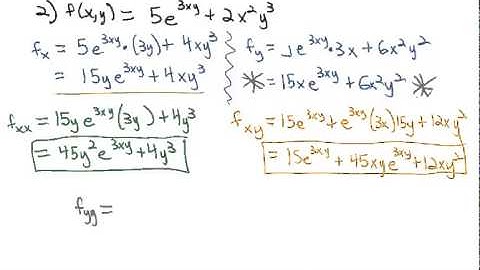 2) f(x,y) = 5e^{3xy} + 2x²y³
f_x = 5e^{3xy}·(3y) + 4xy³
= 15ye^{3xy} + 4xy³
f_y = 5e^{3xy}·3x + 6x²y²
* = 15xe^{3xy} + 6x²y² *
f_xx = 15ye^{3xy}(3y) + 4y³
= 45y²e^{3xy} + 4y³
f_xy = 15e^{3xy} + e^{3xy}(3x)15y + 12xy²
= 15e^{3xy} + 45xye^{3xy} + 12xy²
f_yy =